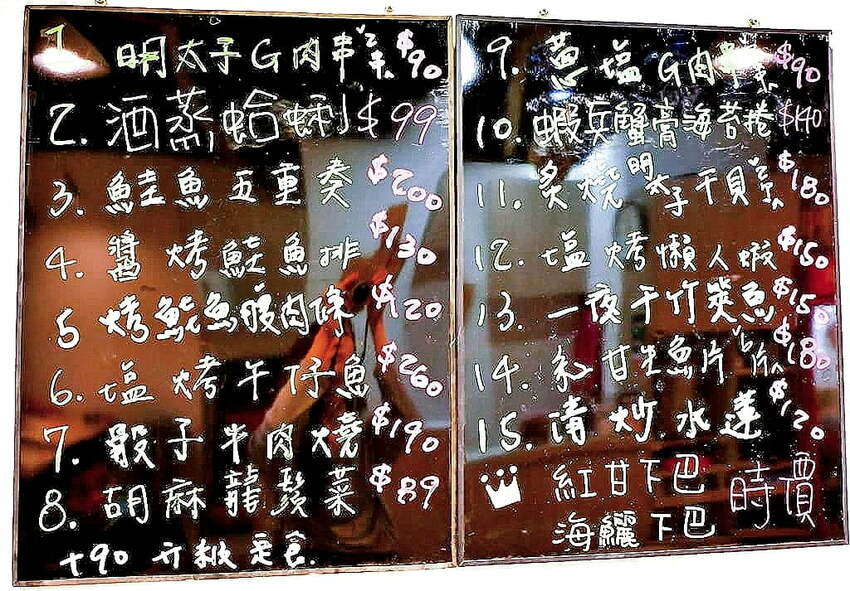 1. 明太子G肉串 2串 $90
2. 酒蒸蛤蜊 $99
3. 鮭魚五重奏 $200
4. 醬烤鮭魚排 $130
5 烤鮭魚腹肉條 $120
6. 塩烤午仔魚 $260
7. 骰子牛肉燒 $190
8. 胡麻龍鬚菜 $89
+90 升級定食.
9. 蔥塩G肉串 $90
10. 蝦兵蟹膏海苔捲 $140
11. 炙燒明太子干貝 $180
12. 塩烤懶人蝦 $150
13. 一夜干竹筴魚 $150
14. 紅甘生魚片 $180
15. 清炒水蓮 $120
紅甘下巴 時價
海鱺下巴